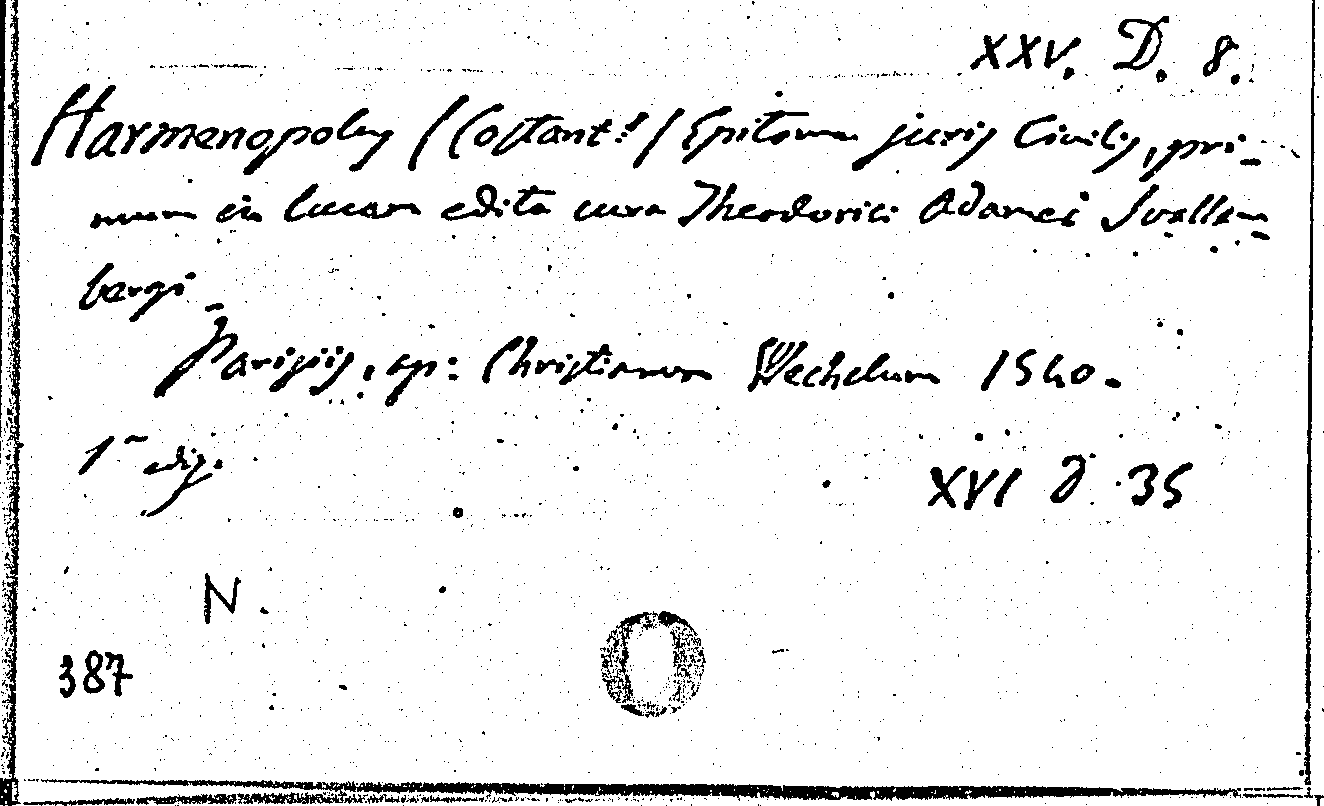 XXV. D. 8.
Harmenopolus (Costant:) Epitome juris Civilis, pri-
mum in lucem edita cura Theodorici Adamei Svallem-
bergi
Parisiis, ap: Christianum Wechelum 1540.
1ª ediz.
XVI D 35
N.
387